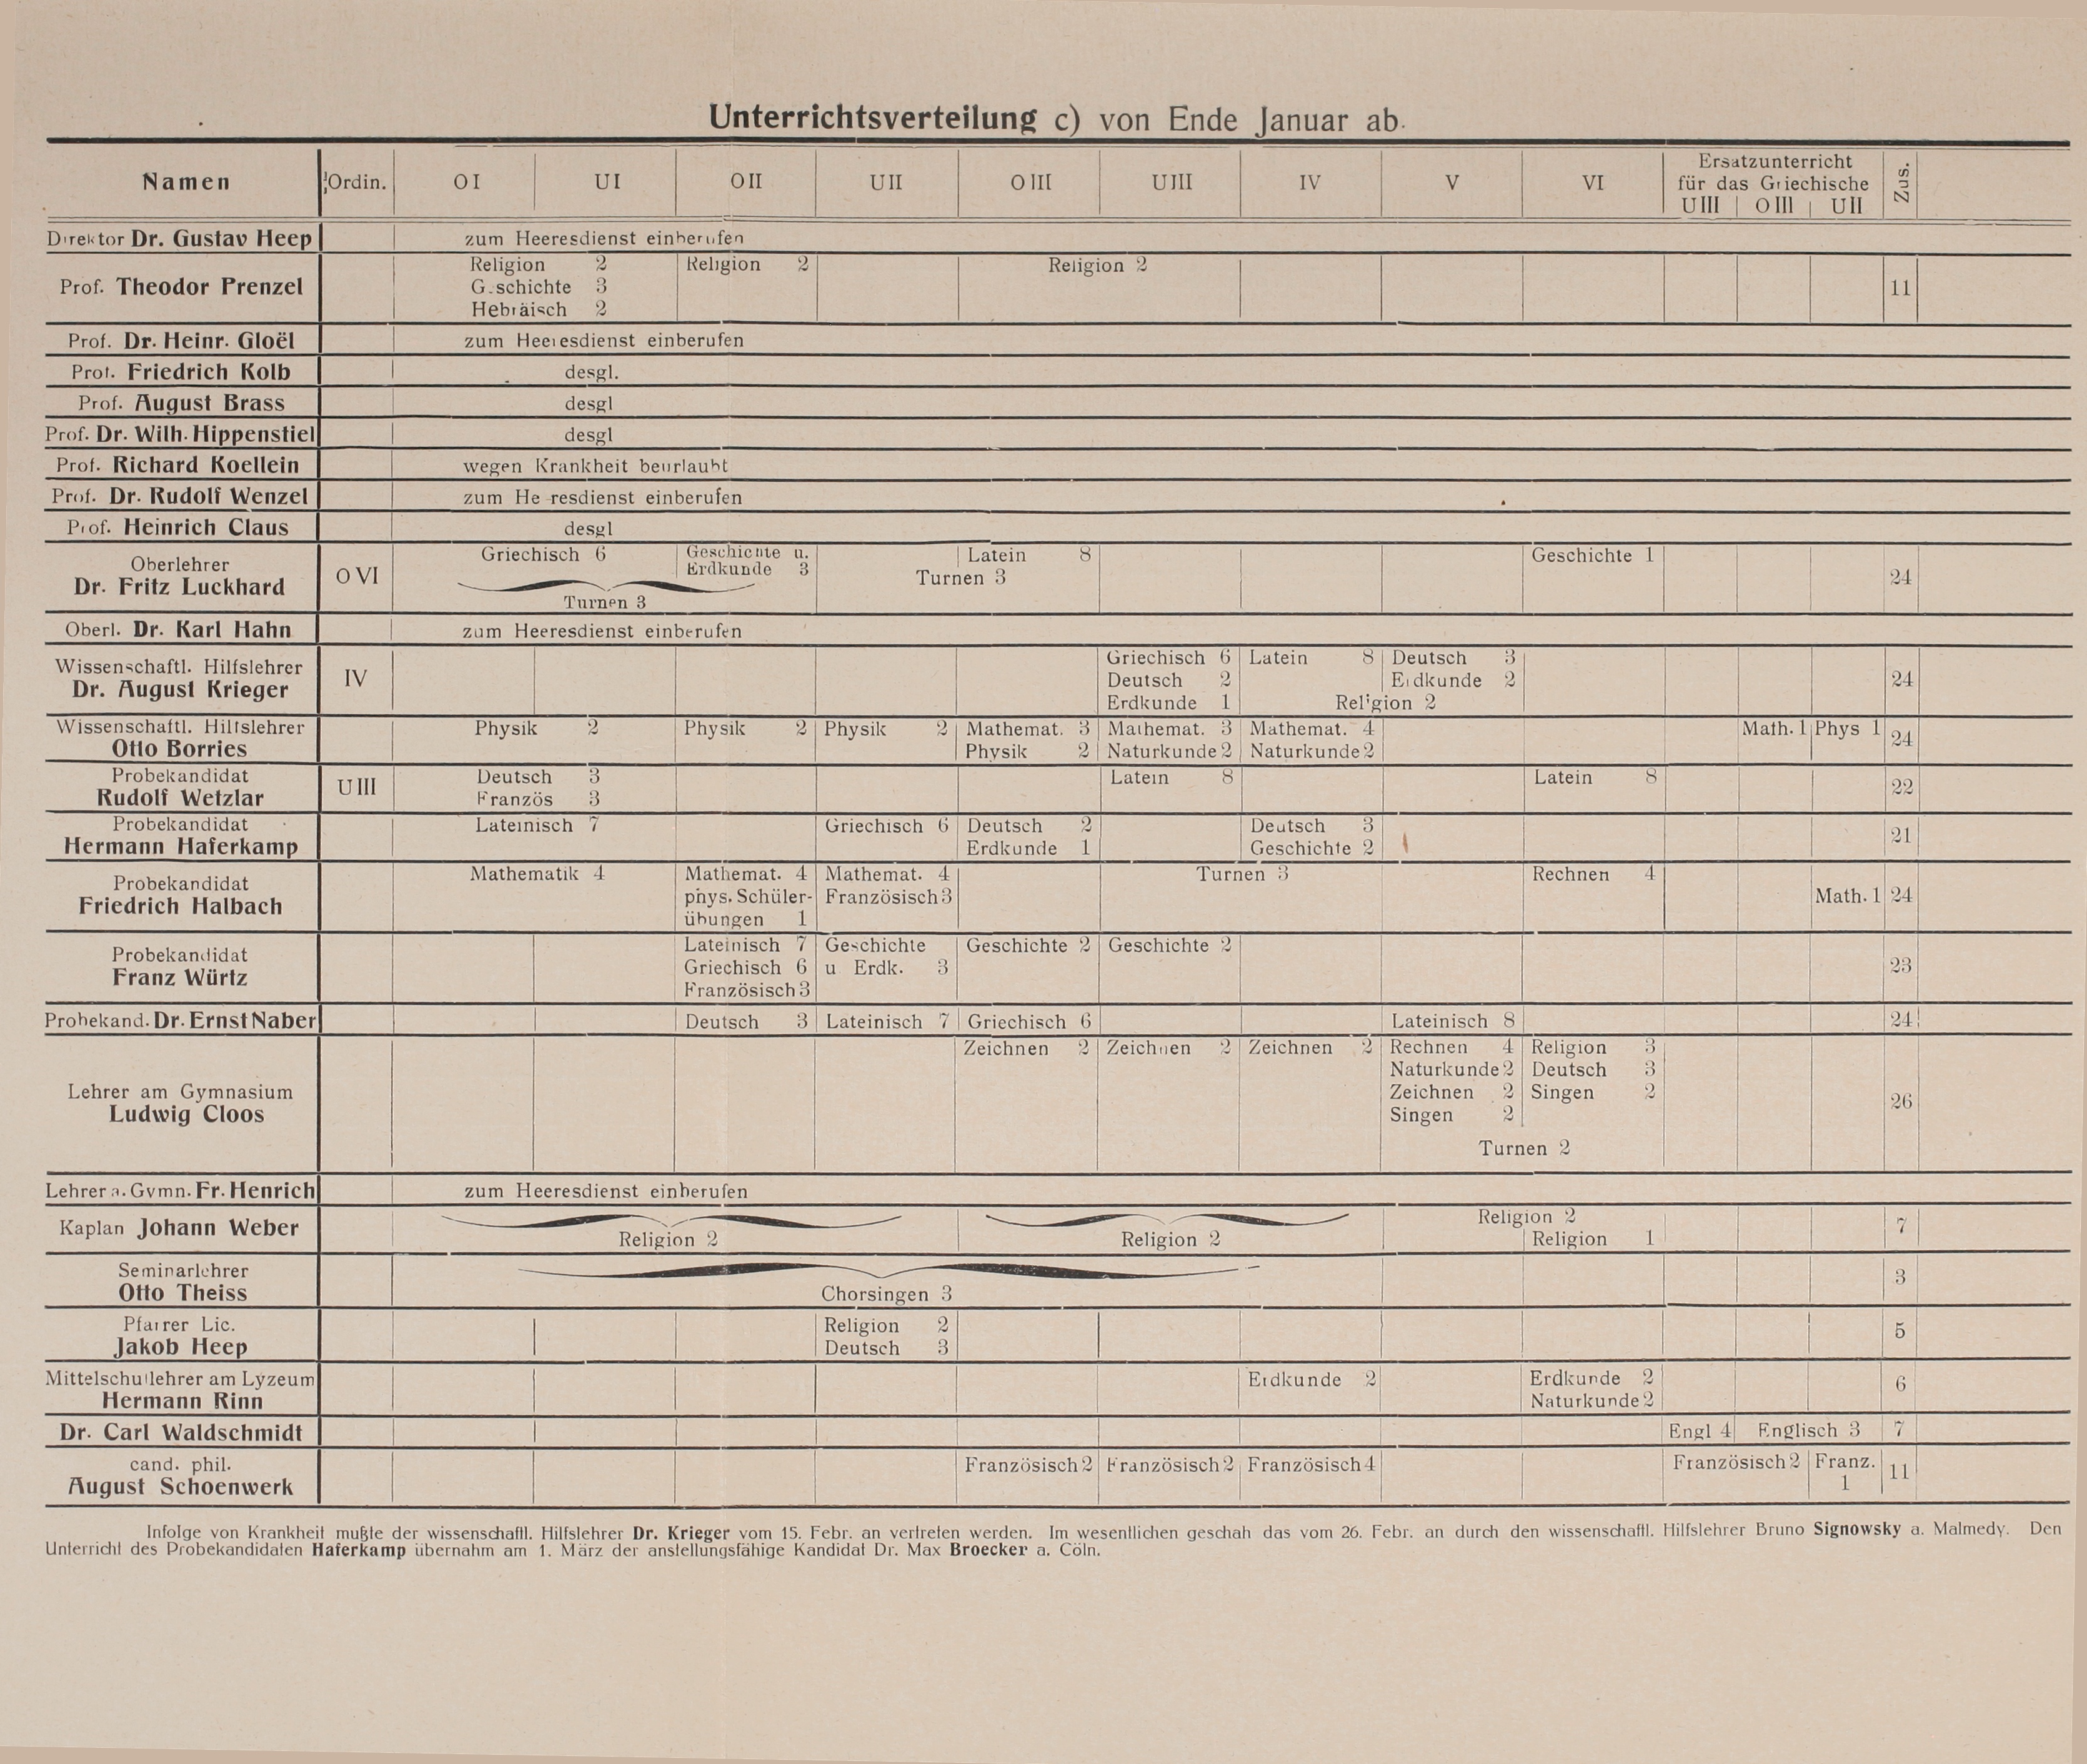 Unterrichtsverteilung c) von Ende Januar ab.
Namen Ordin. O I U I O II U II O III U III IV V VI Ersatzunterricht für das Griechische U III O III U II Zus.
Direktor Dr. Gustav Heep zum Heeresdienst einberufen
Religion 2 Religion 2 Religion 2
Prof. Theodor Prenzel Geschichte 3 11
Hebräisch 2
Prof. Dr. Heinr. Gloël zum Heeresdienst einberufen
Prof. Friedrich Kolb desgl.
Prof. August Brass desgl
Prof. Dr. Wilh. Hippenstiel desgl
Prof. Richard Koellein wegen Krankheit beurlaubt
Prof. Dr. Rudolf Wenzel zum Heeresdienst einberufen
Prof. Heinrich Claus desgl
Oberlehrer Griechisch 6 Geschichte u. Latein 8 Geschichte 1
Erdkunde 3
Dr. Fritz Luckhard O VI Turnen 3 24
Turnen 3
Oberl. Dr. Karl Hahn zum Heeresdienst einberufen
Wissenschaftl. Hilfslehrer Griechisch 6 Latein 8 Deutsch 3
Dr. August Krieger IV Deutsch 2 Erdkunde 2 24
Erdkunde 1 Religion 2
Wissenschaftl. Hilfslehrer Physik 2 Physik 2 Physik 2 Mathemat. 3 Mathemat. 3 Mathemat. 4 Math. 1 Phys 1
Otto Borries Physik 2 Naturkunde 2 Naturkunde 2 24
Probekandidat Deutsch 3 Latein 8 Latein 8
Rudolf Wetzlar U III Französ 3 22
Probekandidat Lateinisch 7 Griechisch 6 Deutsch 2 Deutsch 3
Hermann Haferkamp Erdkunde 1 Geschichte 2 21
Mathematik 4 Mathemat. 4 Mathemat. 4 Turnen 3 Rechnen 4
Probekandidat phys. Schüler- Französisch 3 Math. 1 24
Friedrich Halbach übungen 1
Lateinisch 7 Geschichte Geschichte 2 Geschichte 2
Probekandidat Griechisch 6 u Erdk. 3 23
Franz Würtz Französisch 3
Probekand. Dr. Ernst Naber Deutsch 3 Lateinisch 7 Griechisch 6 Lateinisch 8 24
Zeichnen 2 Zeichnen 2 Zeichnen 2 Rechnen 4 Religion 3
Naturkunde 2 Deutsch 3
Lehrer am Gymnasium Zeichnen 2 Singen 2
Ludwig Cloos Singen 2 26
Turnen 2
Lehrer a. Gymn. Fr. Henrich zum Heeresdienst einberufen
Religion 2
Kaplan Johann Weber Religion 2 Religion 2 Religion 1 7
Seminarlehrer
Otto Theiss Chorsingen 3 3
Pfarrer Lic. Religion 2
Jakob Heep Deutsch 3 5
Mittelschullehrer am Lyzeum Erdkunde 2 Erdkunde 2
Hermann Rinn Naturkunde 2 6
Dr. Carl Waldschmidt Engl 4 Englisch 3 7
cand. phil. Französisch 2 Französisch 2 Französisch 4 Französisch 2 Franz. 11
August Schoenwerk 1
Infolge von Krankheit mußte der wissenschaftl. Hilfslehrer Dr. Krieger vom 15. Febr. an vertreten werden. Im wesentlichen geschah das vom 26. Febr. an durch den wissenschaftl. Hilfslehrer Bruno Signowsky a. Malmedy. Den
Unterricht des Probekandidaten Haferkamp übernahm am 1. März der anstellungsfähige Kandidat Dr. Max Broecker a. Cöln.